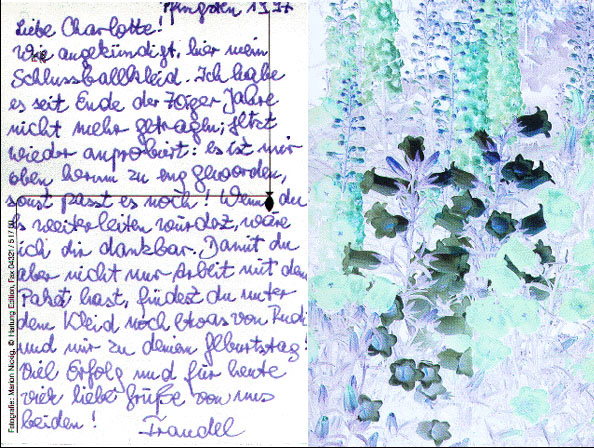 Pfingsten 1997
Liebe Charlotte!
Wie angekündigt, hier mein
Schlussballkleid. Ich habe
es seit Ende der 70iger Jahre
nicht mehr getragen; jetzt
wieder anprobiert: es ist mir
oben herum zu eng geworden,
sonst passt es noch! Wenn du
es weiterleiten würdest, wäre
ich dir dankbar. Damit du
aber nicht nur Arbeit mit dem
Paket hast, findest du unter
dem Kleid noch etwas von Rudi
und mir zu deinem Geburtstag!
Viel Erfolg und für heute
viele liebe Grüße von uns
beiden! Traudel
Fotografie: Marion Nickig, © Hartung Edition, Fax 04321 / 5 17 80